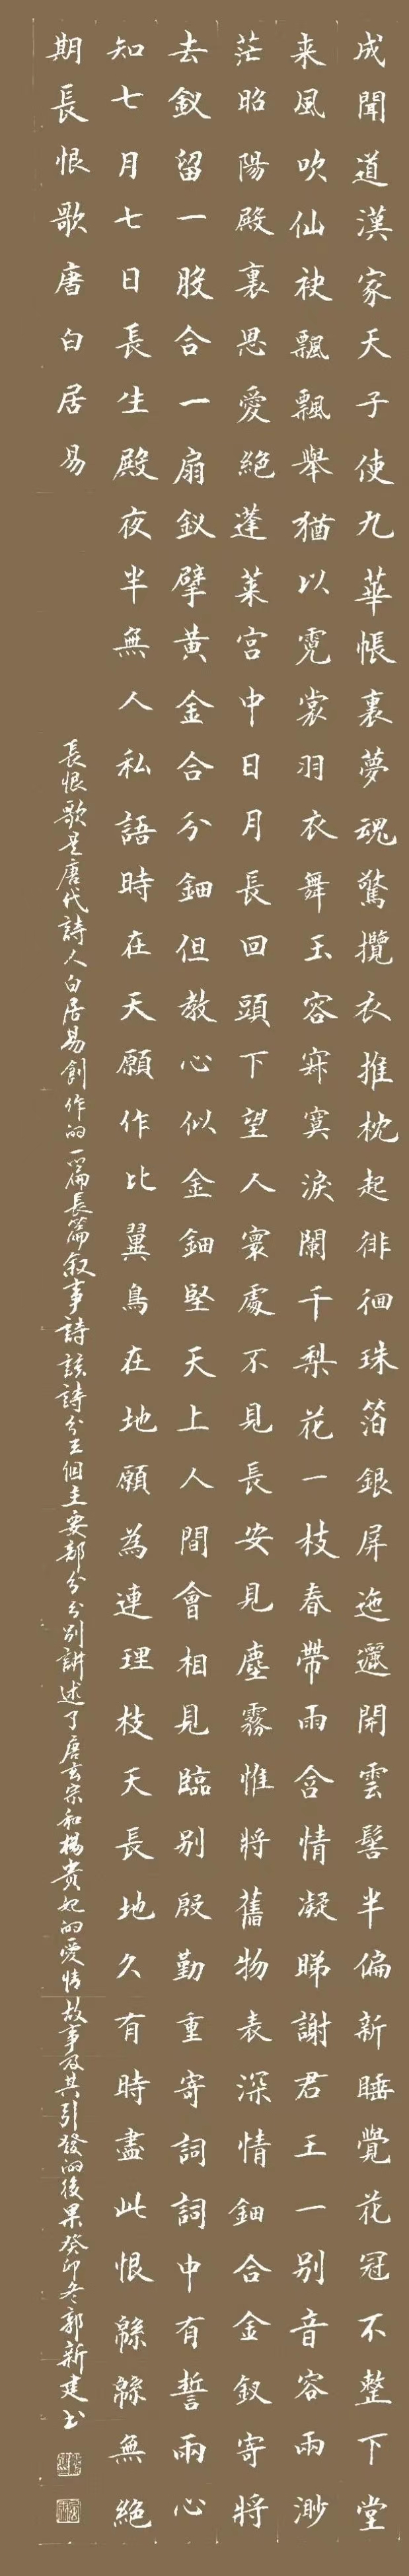 成聞道漢家天子使九華帳裏夢魂驚攬衣推枕起徘徊珠箔銀屏迤邐開雲髻半偏新睡覺花冠不整下堂
来風吹仙袂飄飄舉猶以霓裳羽衣舞玉容寂寞淚闌干梨花一枝春帶雨含情凝睇謝君王一别音容兩渺
茫昭陽殿裏恩愛絕蓬萊宫中日月長回頭下望人寰處不見長安見塵霧惟將舊物表深情鈿合金釵寄將
去釵留一股合一扇釵擘黄金合分鈿但教心似金鈿堅天上人間會相見臨别殷勤重寄詞詞中有誓兩心
知七月七日長生殿夜半無人私語時在天願作比翼鳥在地願為連理枝天長地久有時盡此恨緜緜無絕
期長恨歌唐白居易
長恨歌是唐代詩人白居易創作的一篇長篇叙事詩該詩分三個主要部分分别講述了唐玄宗和楊贵妃的愛情故事及其引發的後果癸卯冬郭新建书